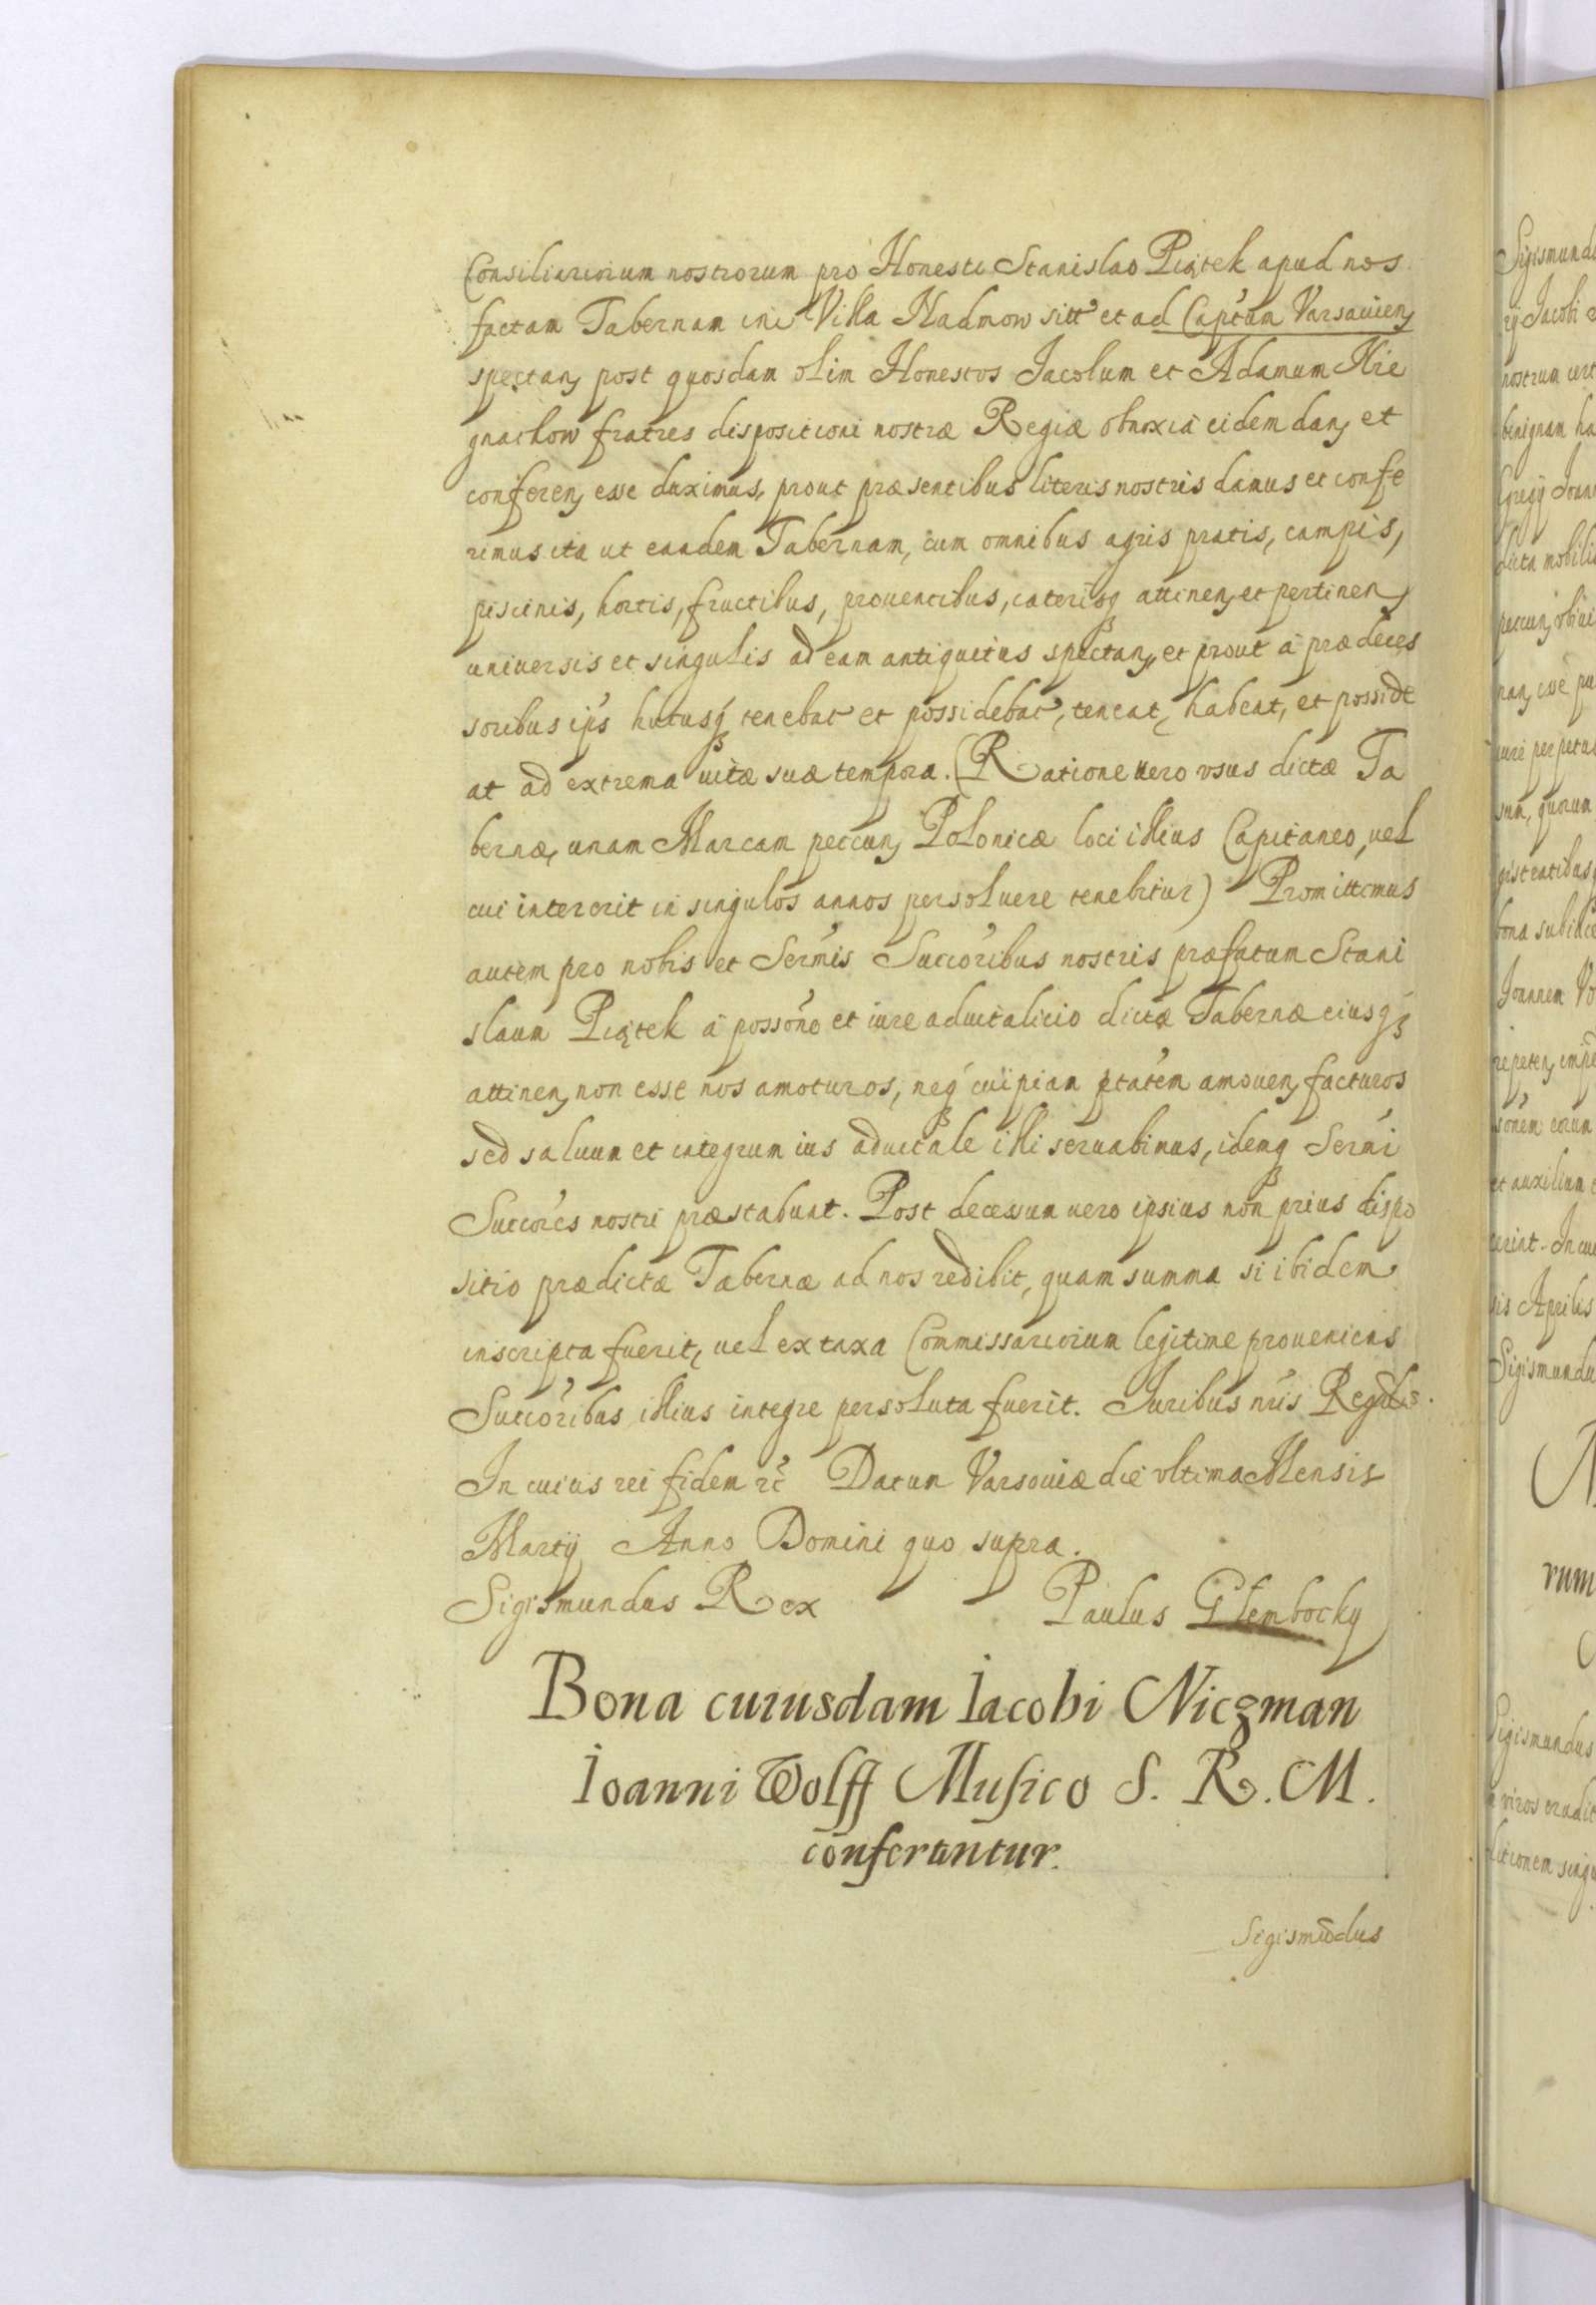 Consiliariorum nostrorum pro Honesto Stanislao Piątek apud nos
factam Tabernam in Villa Nadmow sitt' et ad Capt'um Varsauien,
spectan, post quosdam olim Honestos Iacobum et Adamum Nie
gnachow fratres dispositioni nostræ Regiæ obnoxiã eidem dan, et
conferen, esse duximus, prout præsentibus literis nostris damus et confe
rimus ita ut eandem Tabernam, cum omnibus agris pratis, campis,
piscinis, hortis, fructibus, prouentibus, cæterisq attinen, et pertinen,
uniuersis et singulis ad eam antiquitus spectan, et prout à prædeces
soribus ip's hucusq tenebat' et possidebat', teneat, habeat, et posside
at ad extrema uitæ suæ tempora. (Ratione uero usus dictæ Ta
bernæ, unam Marcam peccun, Polonicæ loci illius Capitaneo, uel
cui intererit in singulos annos persoluere tenebitur) Promittimus
autem pro nobis et Ser'mis Succo'ribus nostris præfatum Stani
slaum Piątek à posso'ne et iure aduitalicio dictæ Tabernæ eiusq
attinen, non esse nos amoturos, neq cuipiam ptã'tem amouen, facturos
sed saluum et integrum ius aduitale illi seruabimus, idemq Ser'mi
Succo'res nostri præstabunt. Post decessum uero ipsius non prius dispo
sitio prædictæ Tabernæ ad nos redibit, quam summa si ibidem
inscripta fuerit, uel ex taxa Commissariorum legitime proueniens
Succo'ribus illius integre persoluta fuerit. Iuribus nr'is Regalib.
In cuius rei fidem etc' Datum Varsouiæ die ultima Mensis
Martij Anno Domini quo supra.
Sigismundus Rex Paulus Glembocky
Bona cuiusdam Iacobi Niczman
Ioanni Wolff Musico S. R. M.
conferuntur.
Sigismũdus